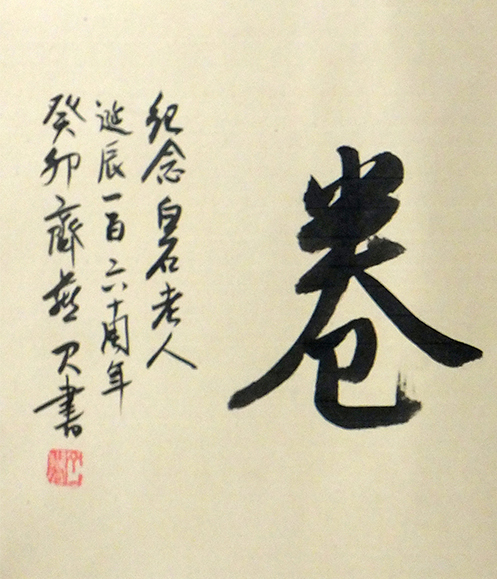 卷
纪念白石老人
诞辰一百六十周年
癸卯齊燕
書